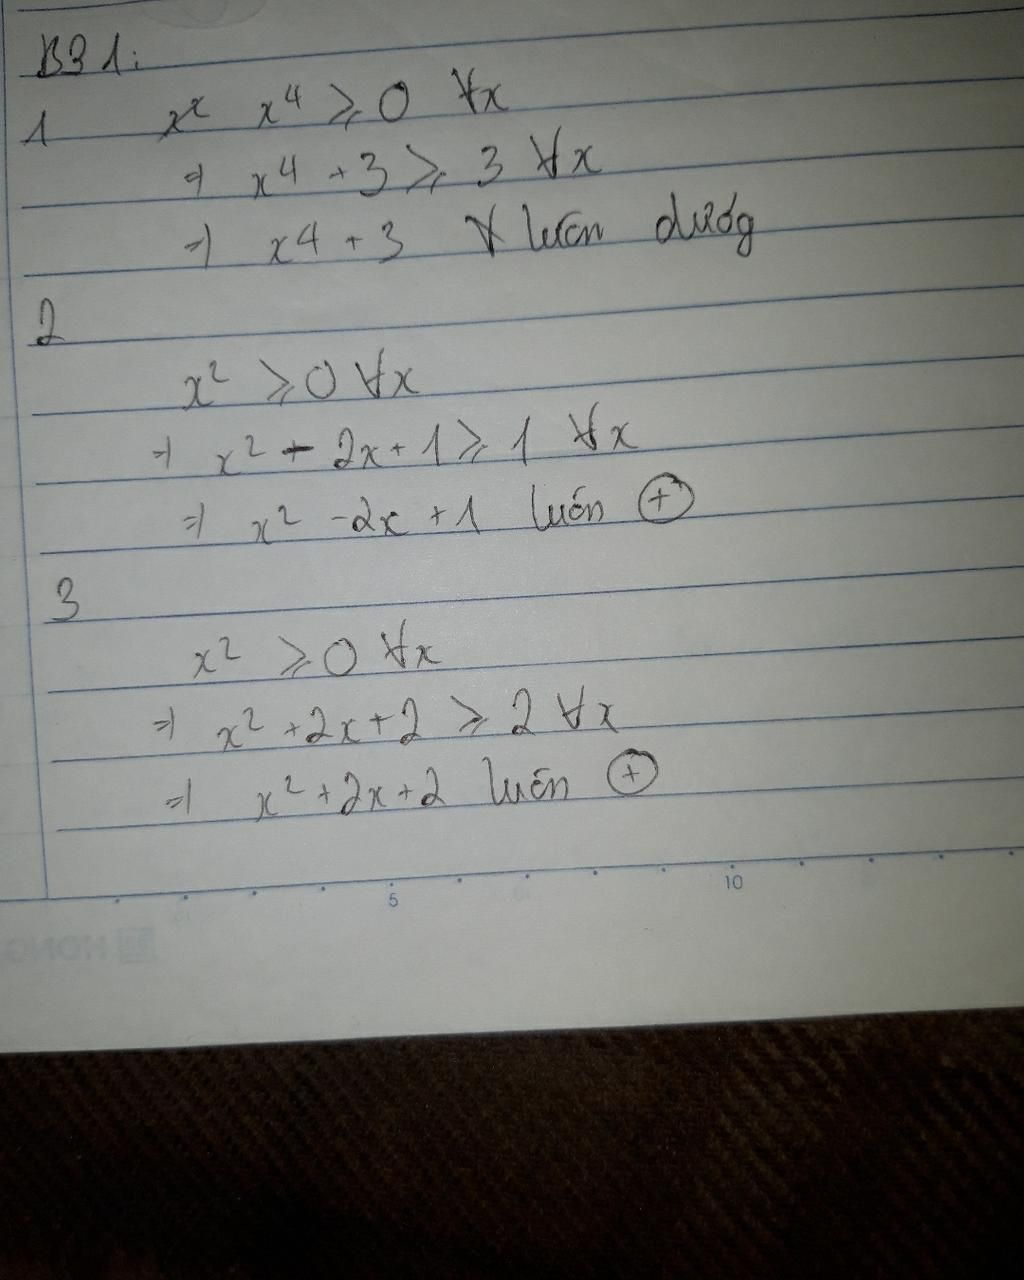 B31:
1 x² x⁴ ⩾ 0 ∀x
⇒ x⁴ + 3 ⩾ 3 ∀x
⇒ x⁴ + 3 ∀ luôn dướg
2
x² ⩾ 0 ∀x
⇒ x² - 2x + 1 ⩾ 1 ∀x
⇒ x² - 2x + 1 luôn ⊕
3
x² ⩾ 0 ∀x
⇒ x² + 2x + 2 ⩾ 2 ∀x
⇒ x² + 2x + 2 luôn ⊕
5 10
HONG